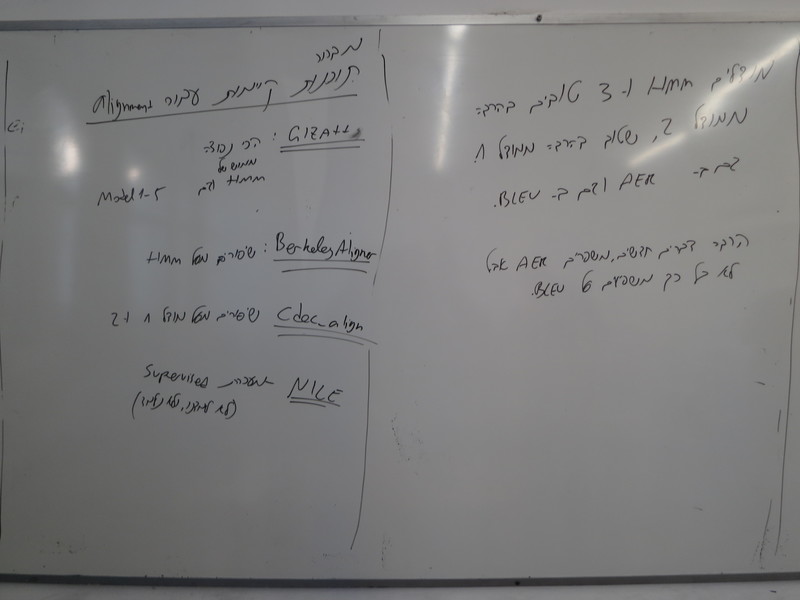 מודלים HMM ו- 3 טובים בהרבה
ממודל 2, שטוב בהרבה ממודל 1.
גם ב- AER וגם ב- BLEU.
הרבה דברים חדשים, משפרים AER אבל
לא כל כך משפיעים על BLEU.
תוכנות קיימות עבור Alignment
GIZA++ : הכי נפוצה
מימוש של
Model 1-5 וגם HMM
BerkeleyAligner : שיפורים מעל HMM
Cdec_align שיפורים מעל מודל 1 ו 2
NILE מערכת Supervised
Ei